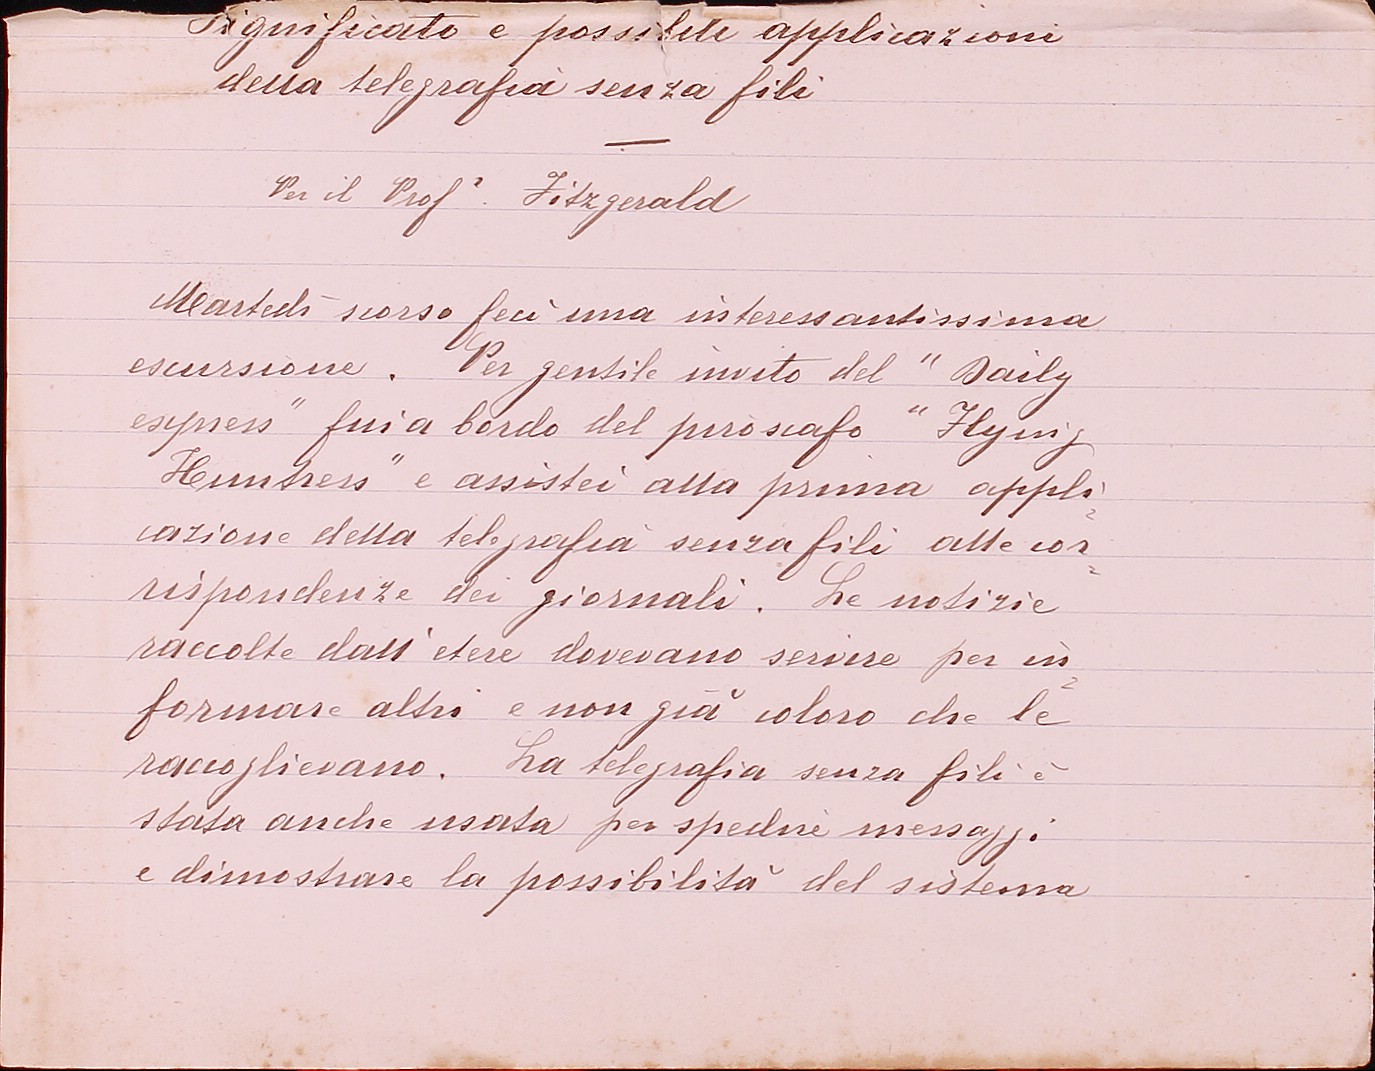 Significato e possibili applicazioni
della telegrafia senza fili
—
Per il Profr. Fitzgerald
Martedì scorso feci una interessantissima
escursione. Per gentile invito del "Daily
express" fui a bordo del piroscafo "Flying
Huntress" e assistei alla prima appli=
cazione della telegrafia senza fili alle cor=
rispondenze dei giornali. Le notizie
raccolte dall'etere dovevano servire per in=
formare altri e non già coloro che le
raccoglievano. La telegrafia senza fili è
stata anche usata per spedire messaggi
e dimostrare la possibilità del sistema